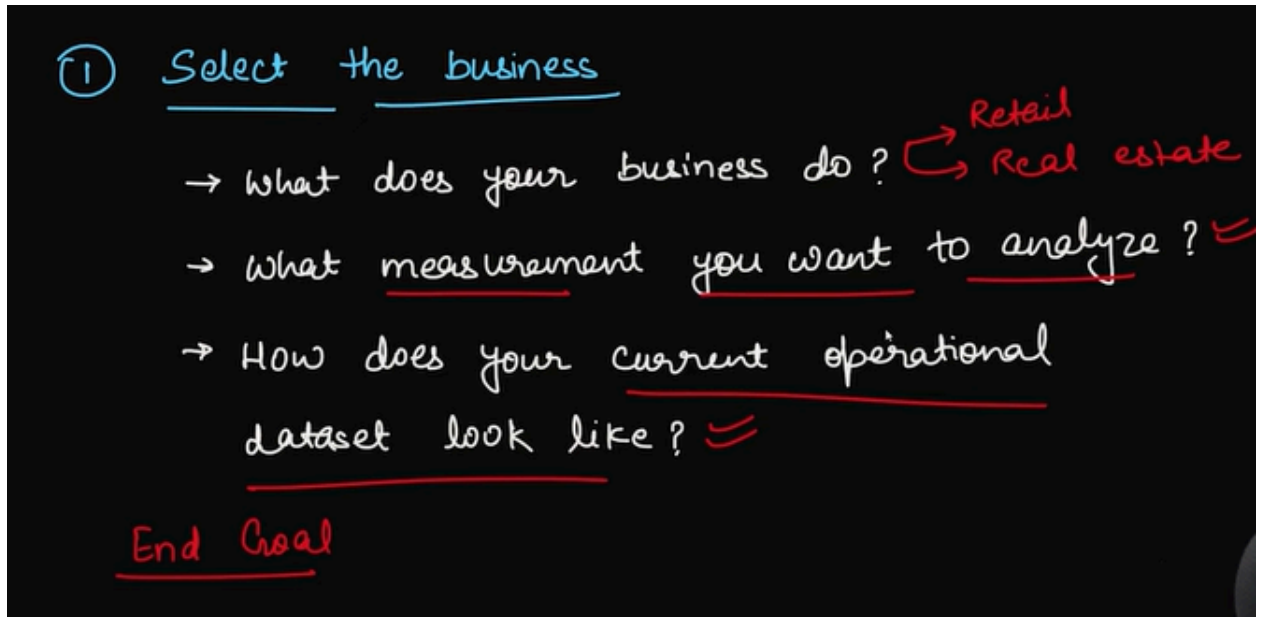 1 Select the business
→ What does your business do? → Retail
→ Real estate
→ What measurement you want to analyze?
→ How does your current operational
dataset look like?
End Goal